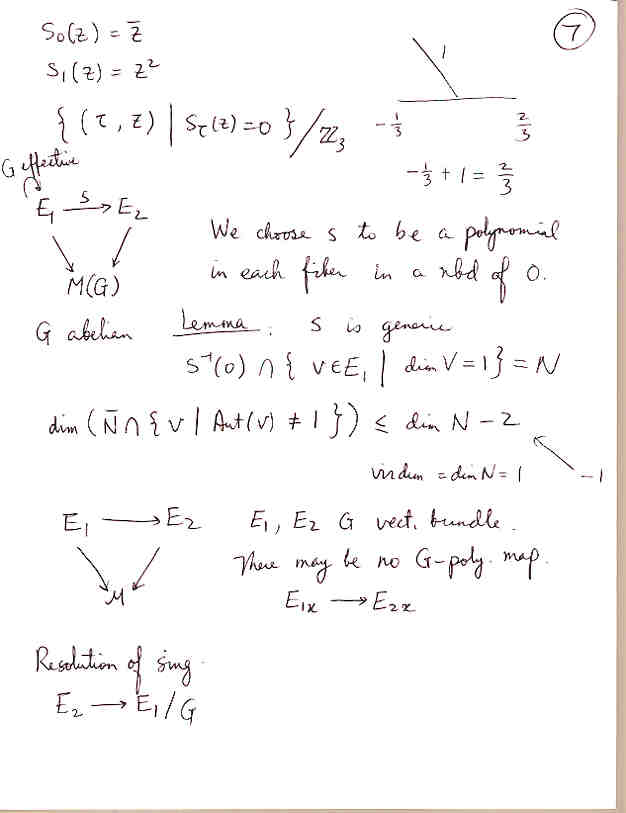 7
S₀(z) = z̄
S₁(z) = z²
{ (τ, z) | S_τ(z) = 0 } / ℤ₃
1
-1/3
2/3
-1/3 + 1 = 2/3
G effective
E₁ —S→ E₂
M(G)
We choose s to be a polynomial
in each fiber in a nbd of 0.
G abelian Lemma: S is generic
S⁻¹(0) ∩ { v ∈ E₁ | dim V = 1 } = N
dim ( N̄ ∩ { v | Aut(v) ≠ 1 } ) ≤ dim N - 2
vir dim = dim N = 1
-1
E₁ → E₂ E₁, E₂ G vect. bundle.
M
There may be no G-poly. map.
E₁ₓ → E₂ₓ
Resolution of sing.
E₂ → E₁/G